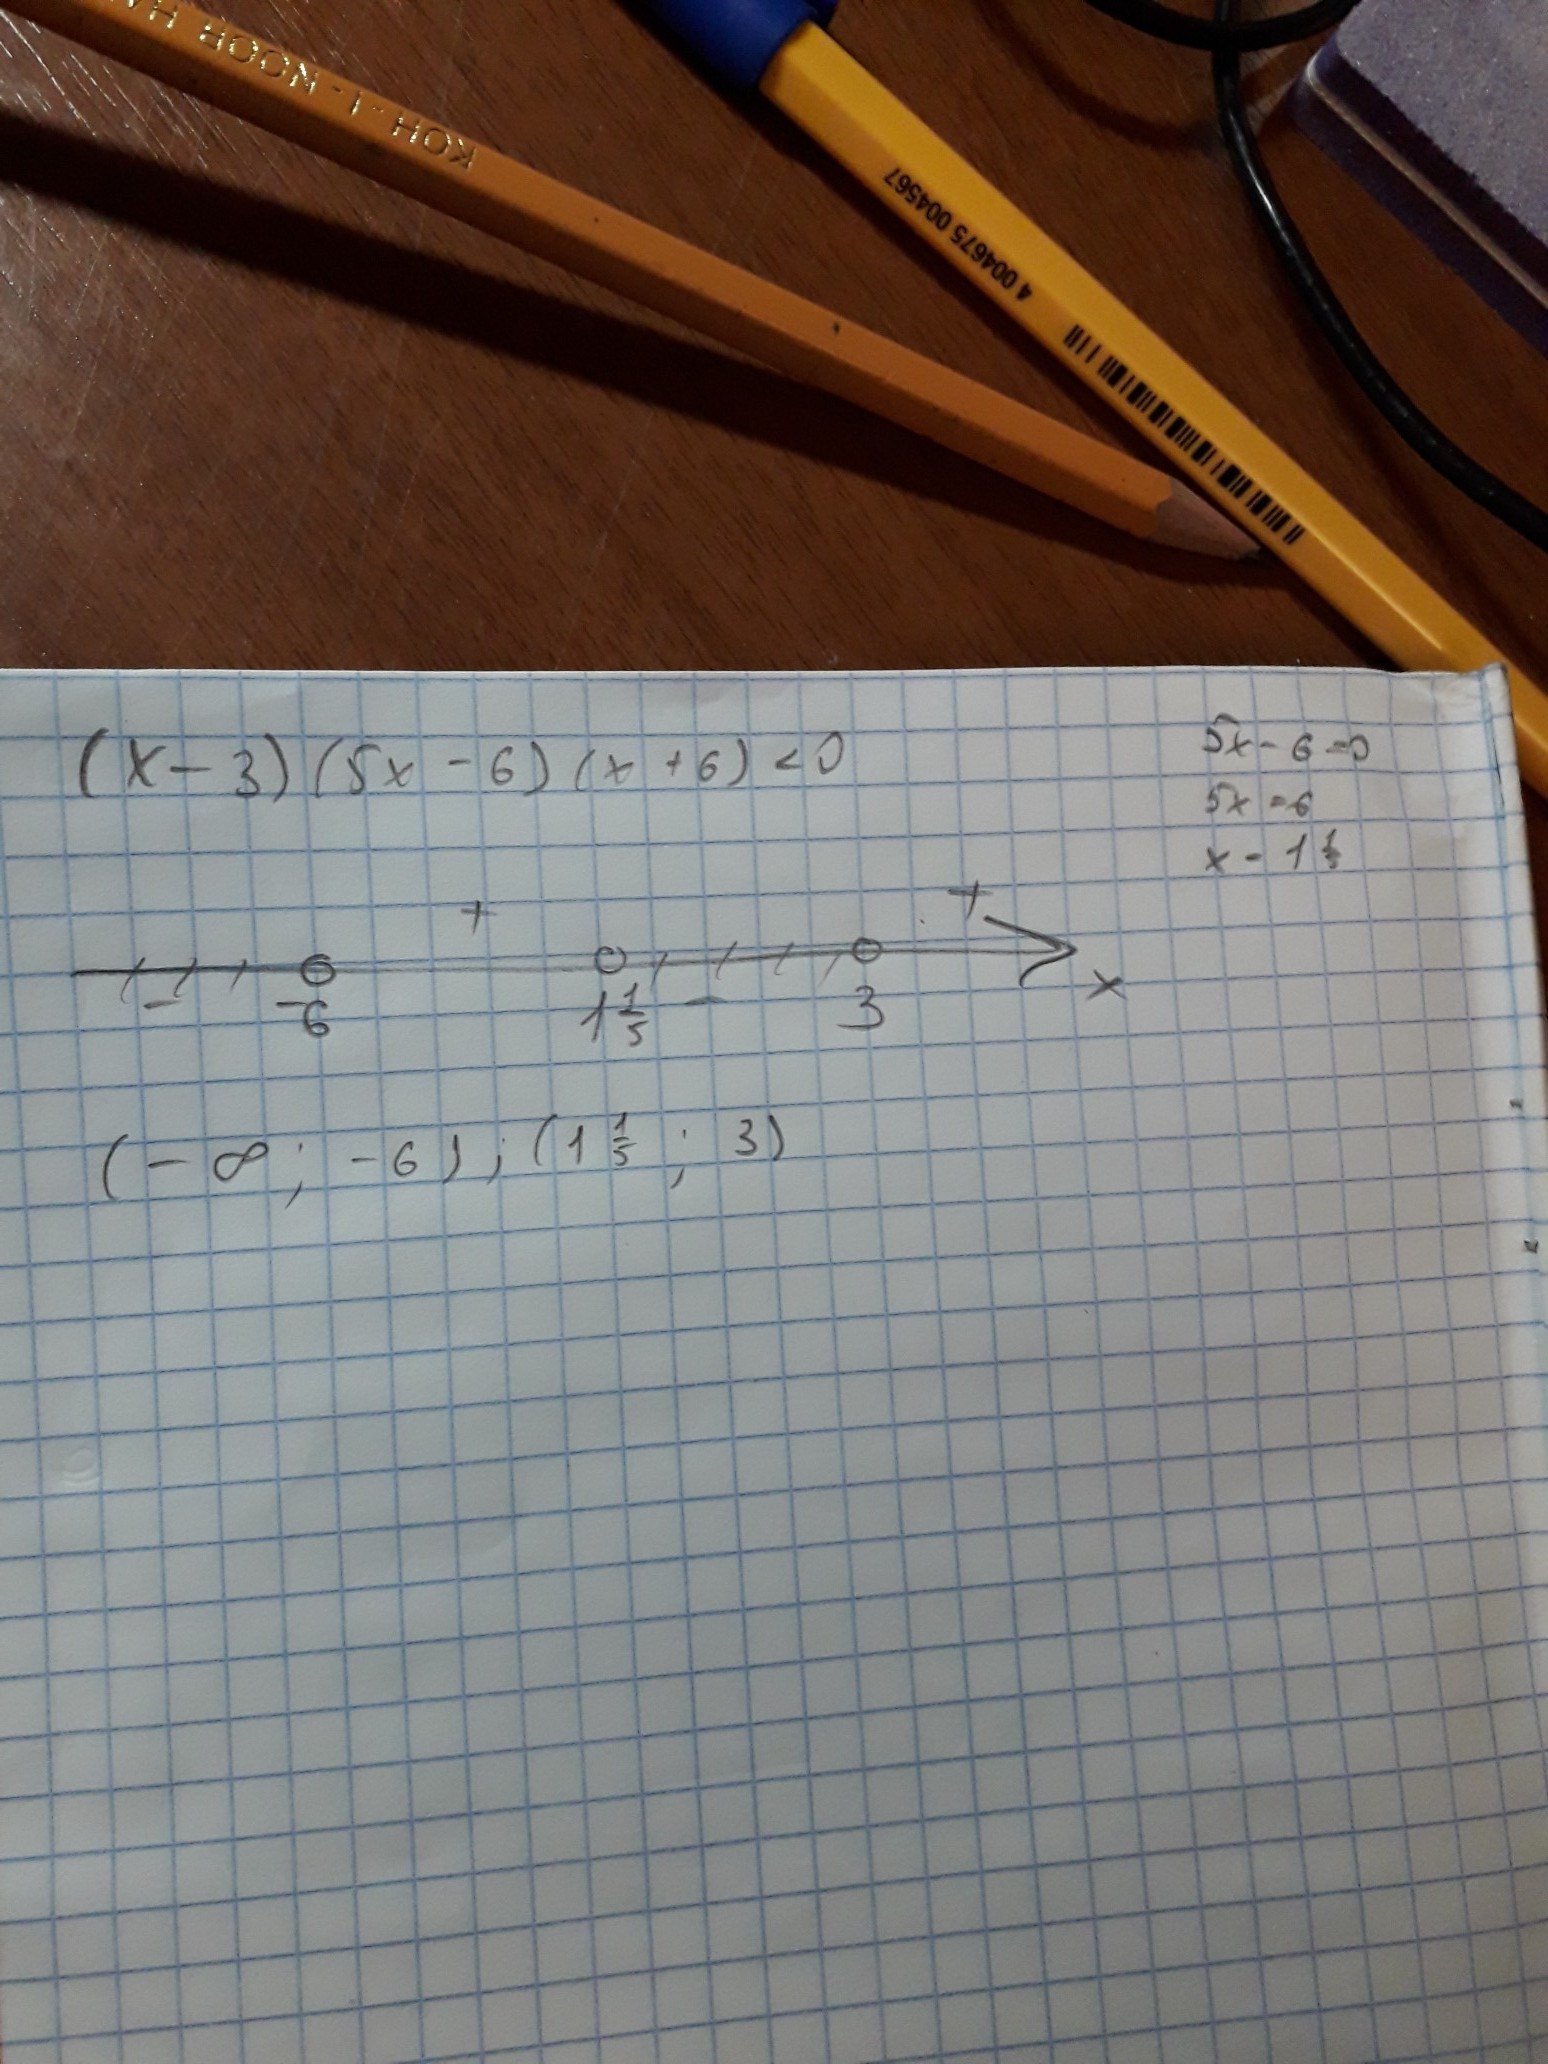 KOH-I-NOOR HA
4 004675 004567
(x-3)(5x-6)(x+6)<0
5x-6=0
5x=6
x-1 1/5
+ +
- -
-6 1 1/5 3 x
(-∞; -6); (1 1/5; 3)